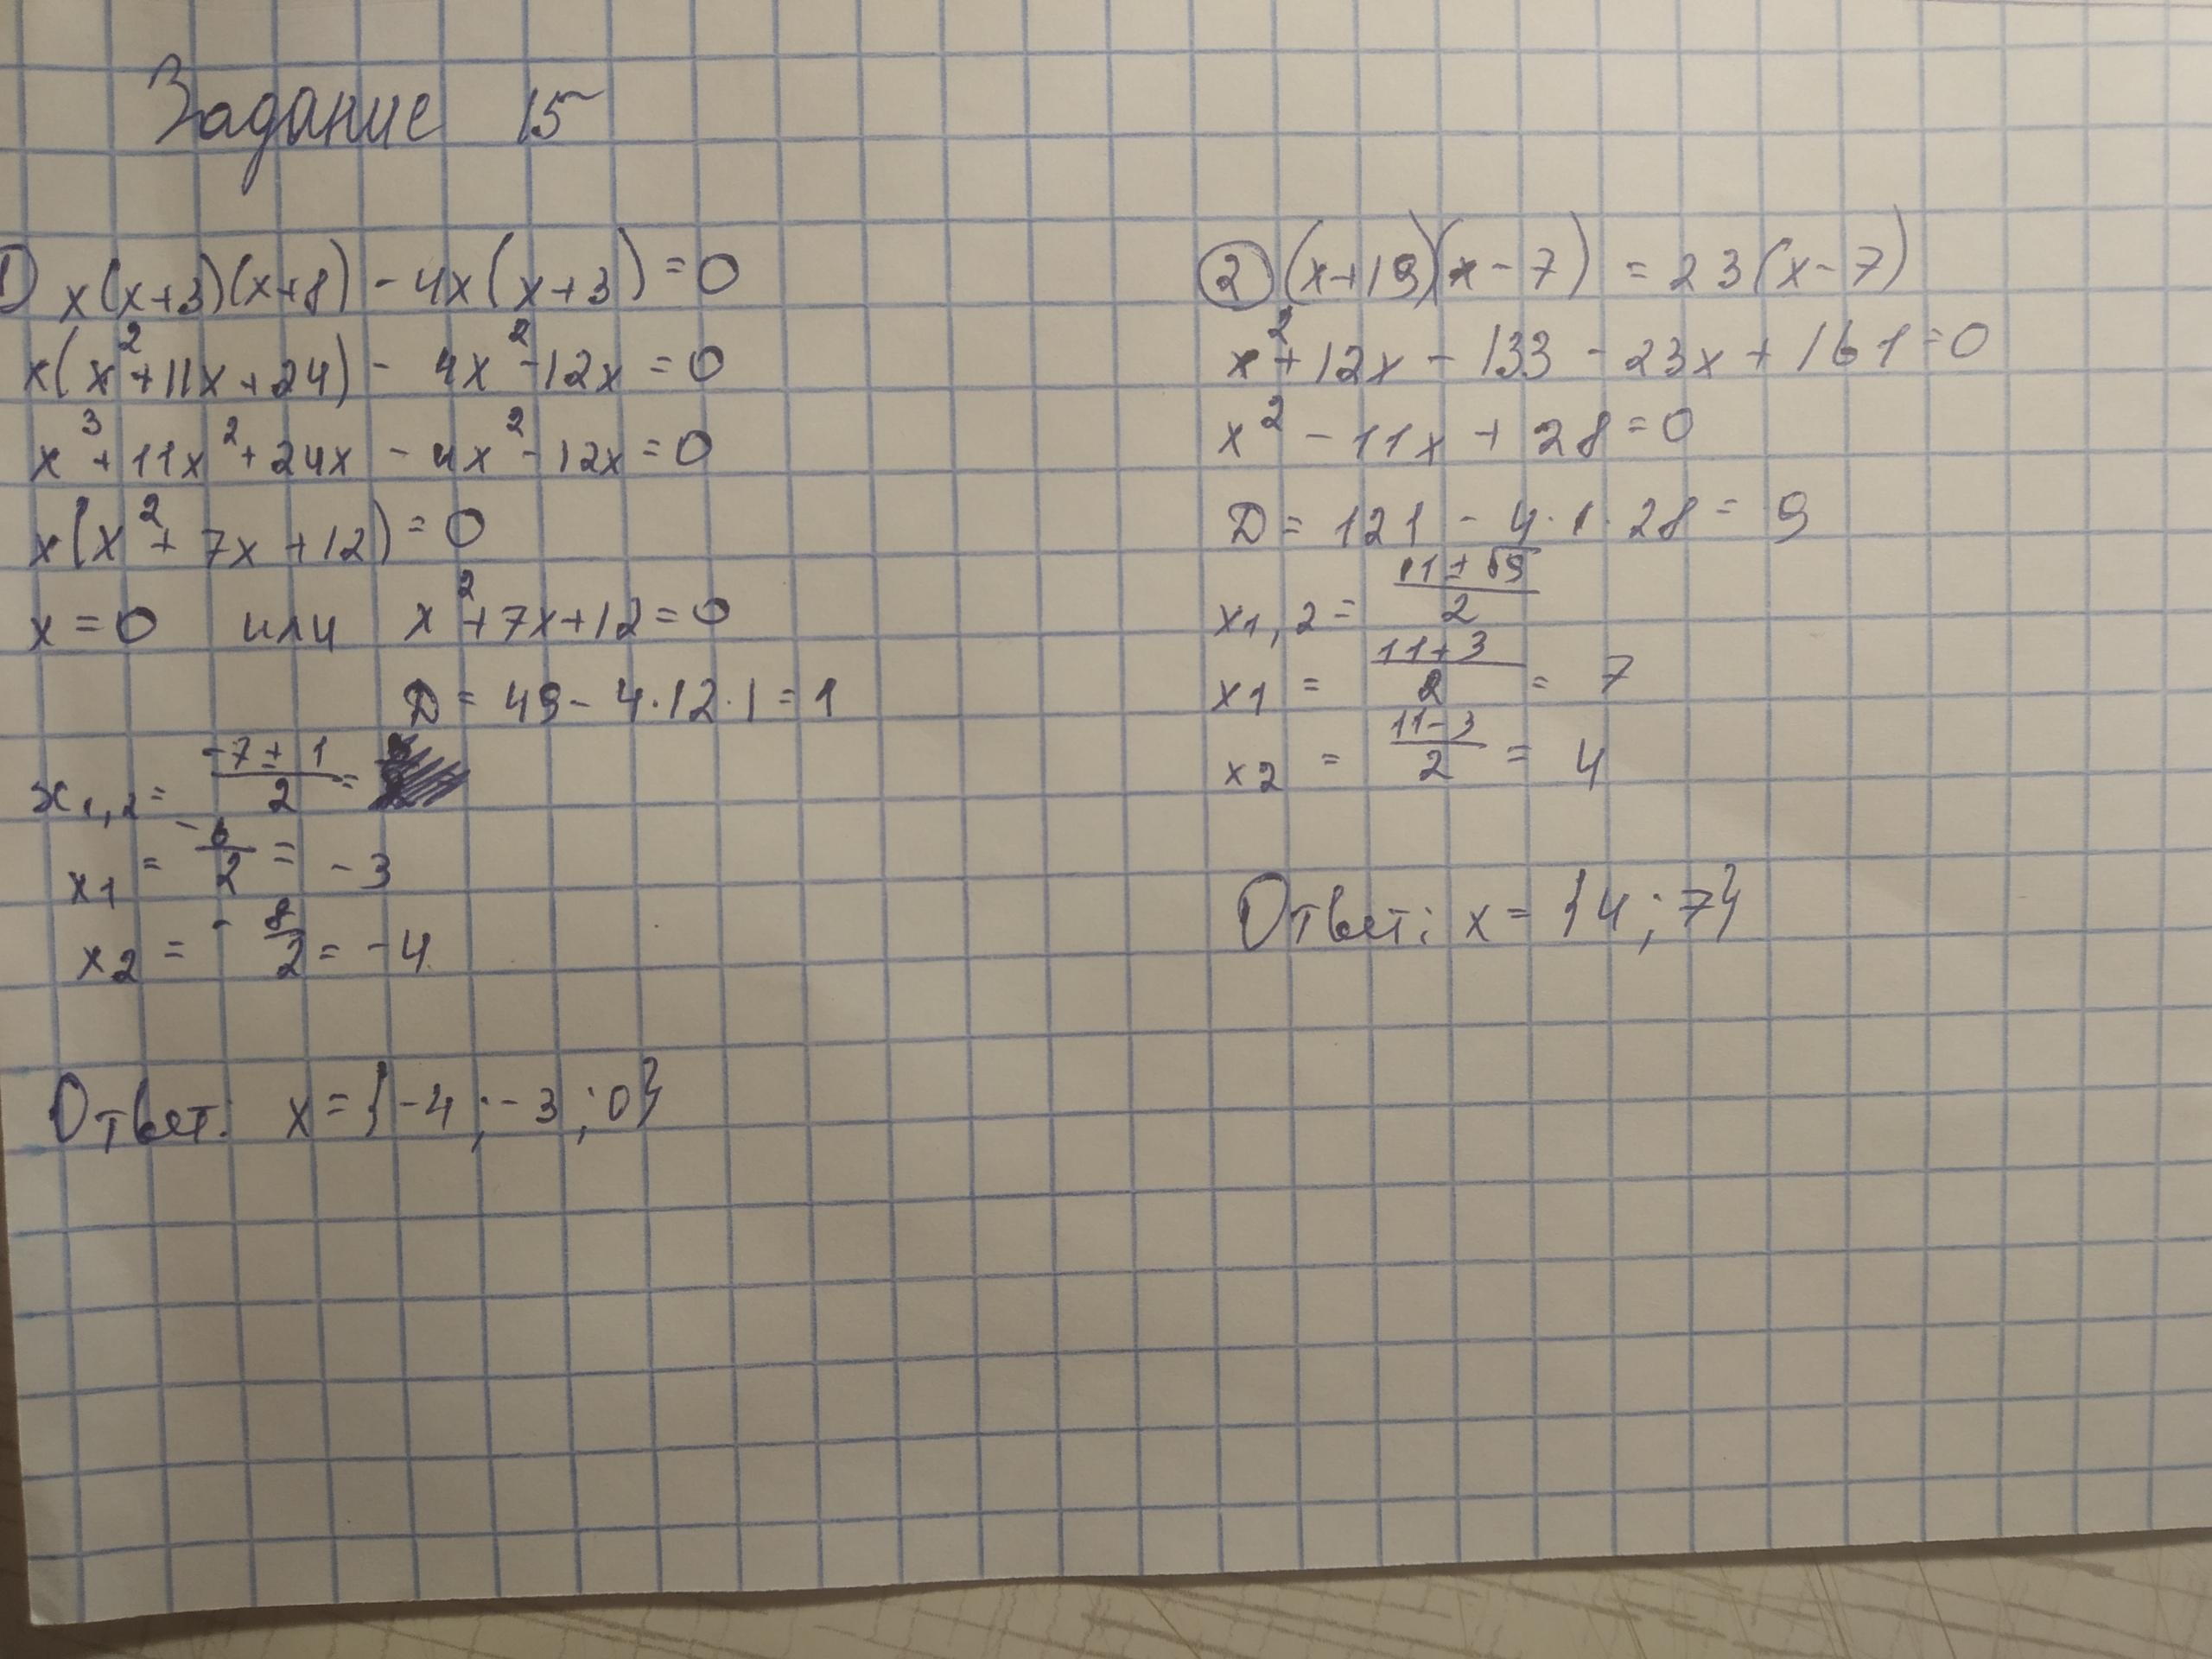 Задание 15
1) x(x+3)(x+8) - 4x(x+3) = 0
x(x²+11x+24) - 4x² - 12x = 0
x³ + 11x² + 24x - 4x² - 12x = 0
x(x² + 7x + 12) = 0
x = 0 или x² + 7x + 12 = 0
D = 49 - 4·12·1 = 1
x1,2 = (-7 ± 1)/2 =
x1 = -6/2 = -3
x2 = -8/2 = -4
Ответ: x = {-4; -3; 0}
2 (x+19)(x-7) = 23(x-7)
x² + 12x - 133 - 23x + 161 = 0
x² - 11x + 28 = 0
D = 121 - 4·1·28 = 9
x1,2 = (11 ± √9)/2
x1 = (11+3)/2 = 7
x2 = (11-3)/2 = 4
Ответ: x = {4; 7}